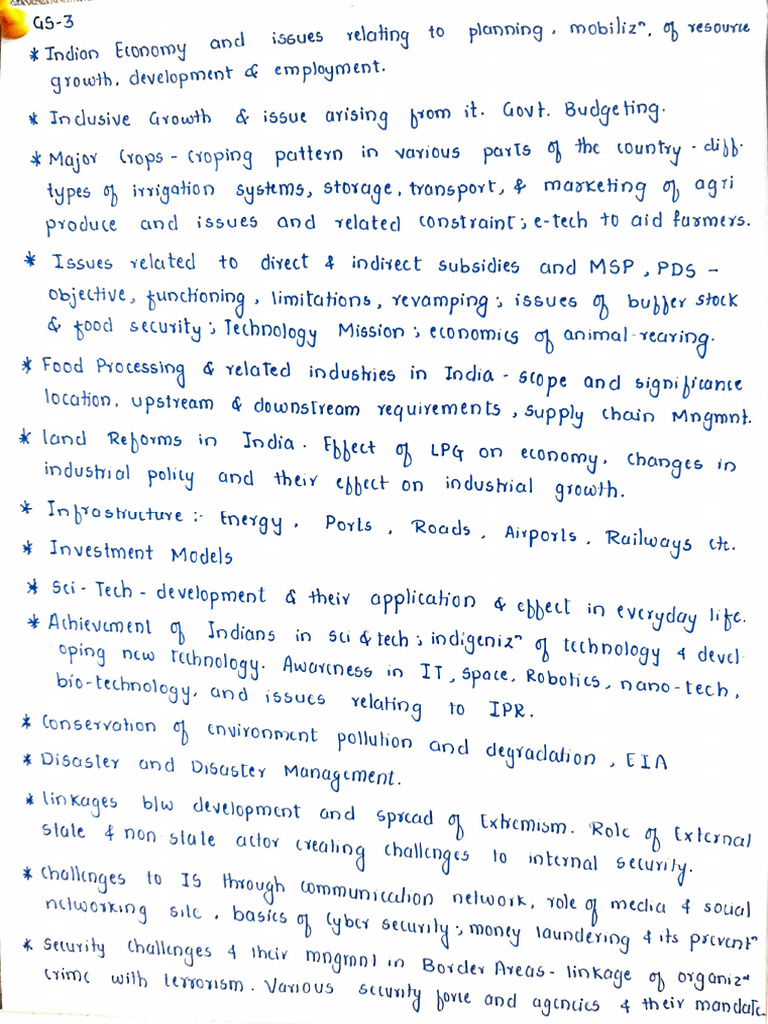 GS-3
* Indian Economy and issues relating to planning, mobilizⁿ, of resource
growth, development & employment.
* Inclusive Growth & issue arising from it. Govt. Budgeting.
* Major Crops - Croping pattern in various parts of the country - diff.
types of irrigation systems, storage, transport, & marketing of agri
produce and issues and related constraint; e-tech to aid farmers.
* Issues related to direct & indirect subsidies and MSP, PDS -
objective, functioning, limitations, revamping; issues of buffer stock
& food security; Technology Mission; economics of animal-rearing.
* Food Processing & related industries in India - scope and significance
location, upstream & downstream requirements, supply chain Mngmnt.
* land Reforms in India. Effect of LPG on economy, changes in
industrial policy and their effect on industrial growth.
* Infrastructure :- Energy, Ports, Roads, Airports, Railways etc.
* Investment Models
* Sci-Tech - development & their application & effect in everyday life.
* Achievement of Indians in sci & tech; indigenizⁿ of technology & devel
oping new technology. Awareness in IT, Space, Robotics, nano-tech,
bio-technology, and issues relating to IPR.
* Conservation of environment pollution and degradation, EIA
* Disaster and Disaster Management.
* linkages b/w development and spread of Extremism. Role of External
state & non state actor creating challenges to internal security.
* Challenges to IS through communication network, role of media & social
networking site, basics of Cyber security; money laundering & its preventⁿ
* Security challenges & their mngmnt in Border Areas - linkage of organizᵉᵈ
crime with terrorism. Various security force and agencies & their mandate